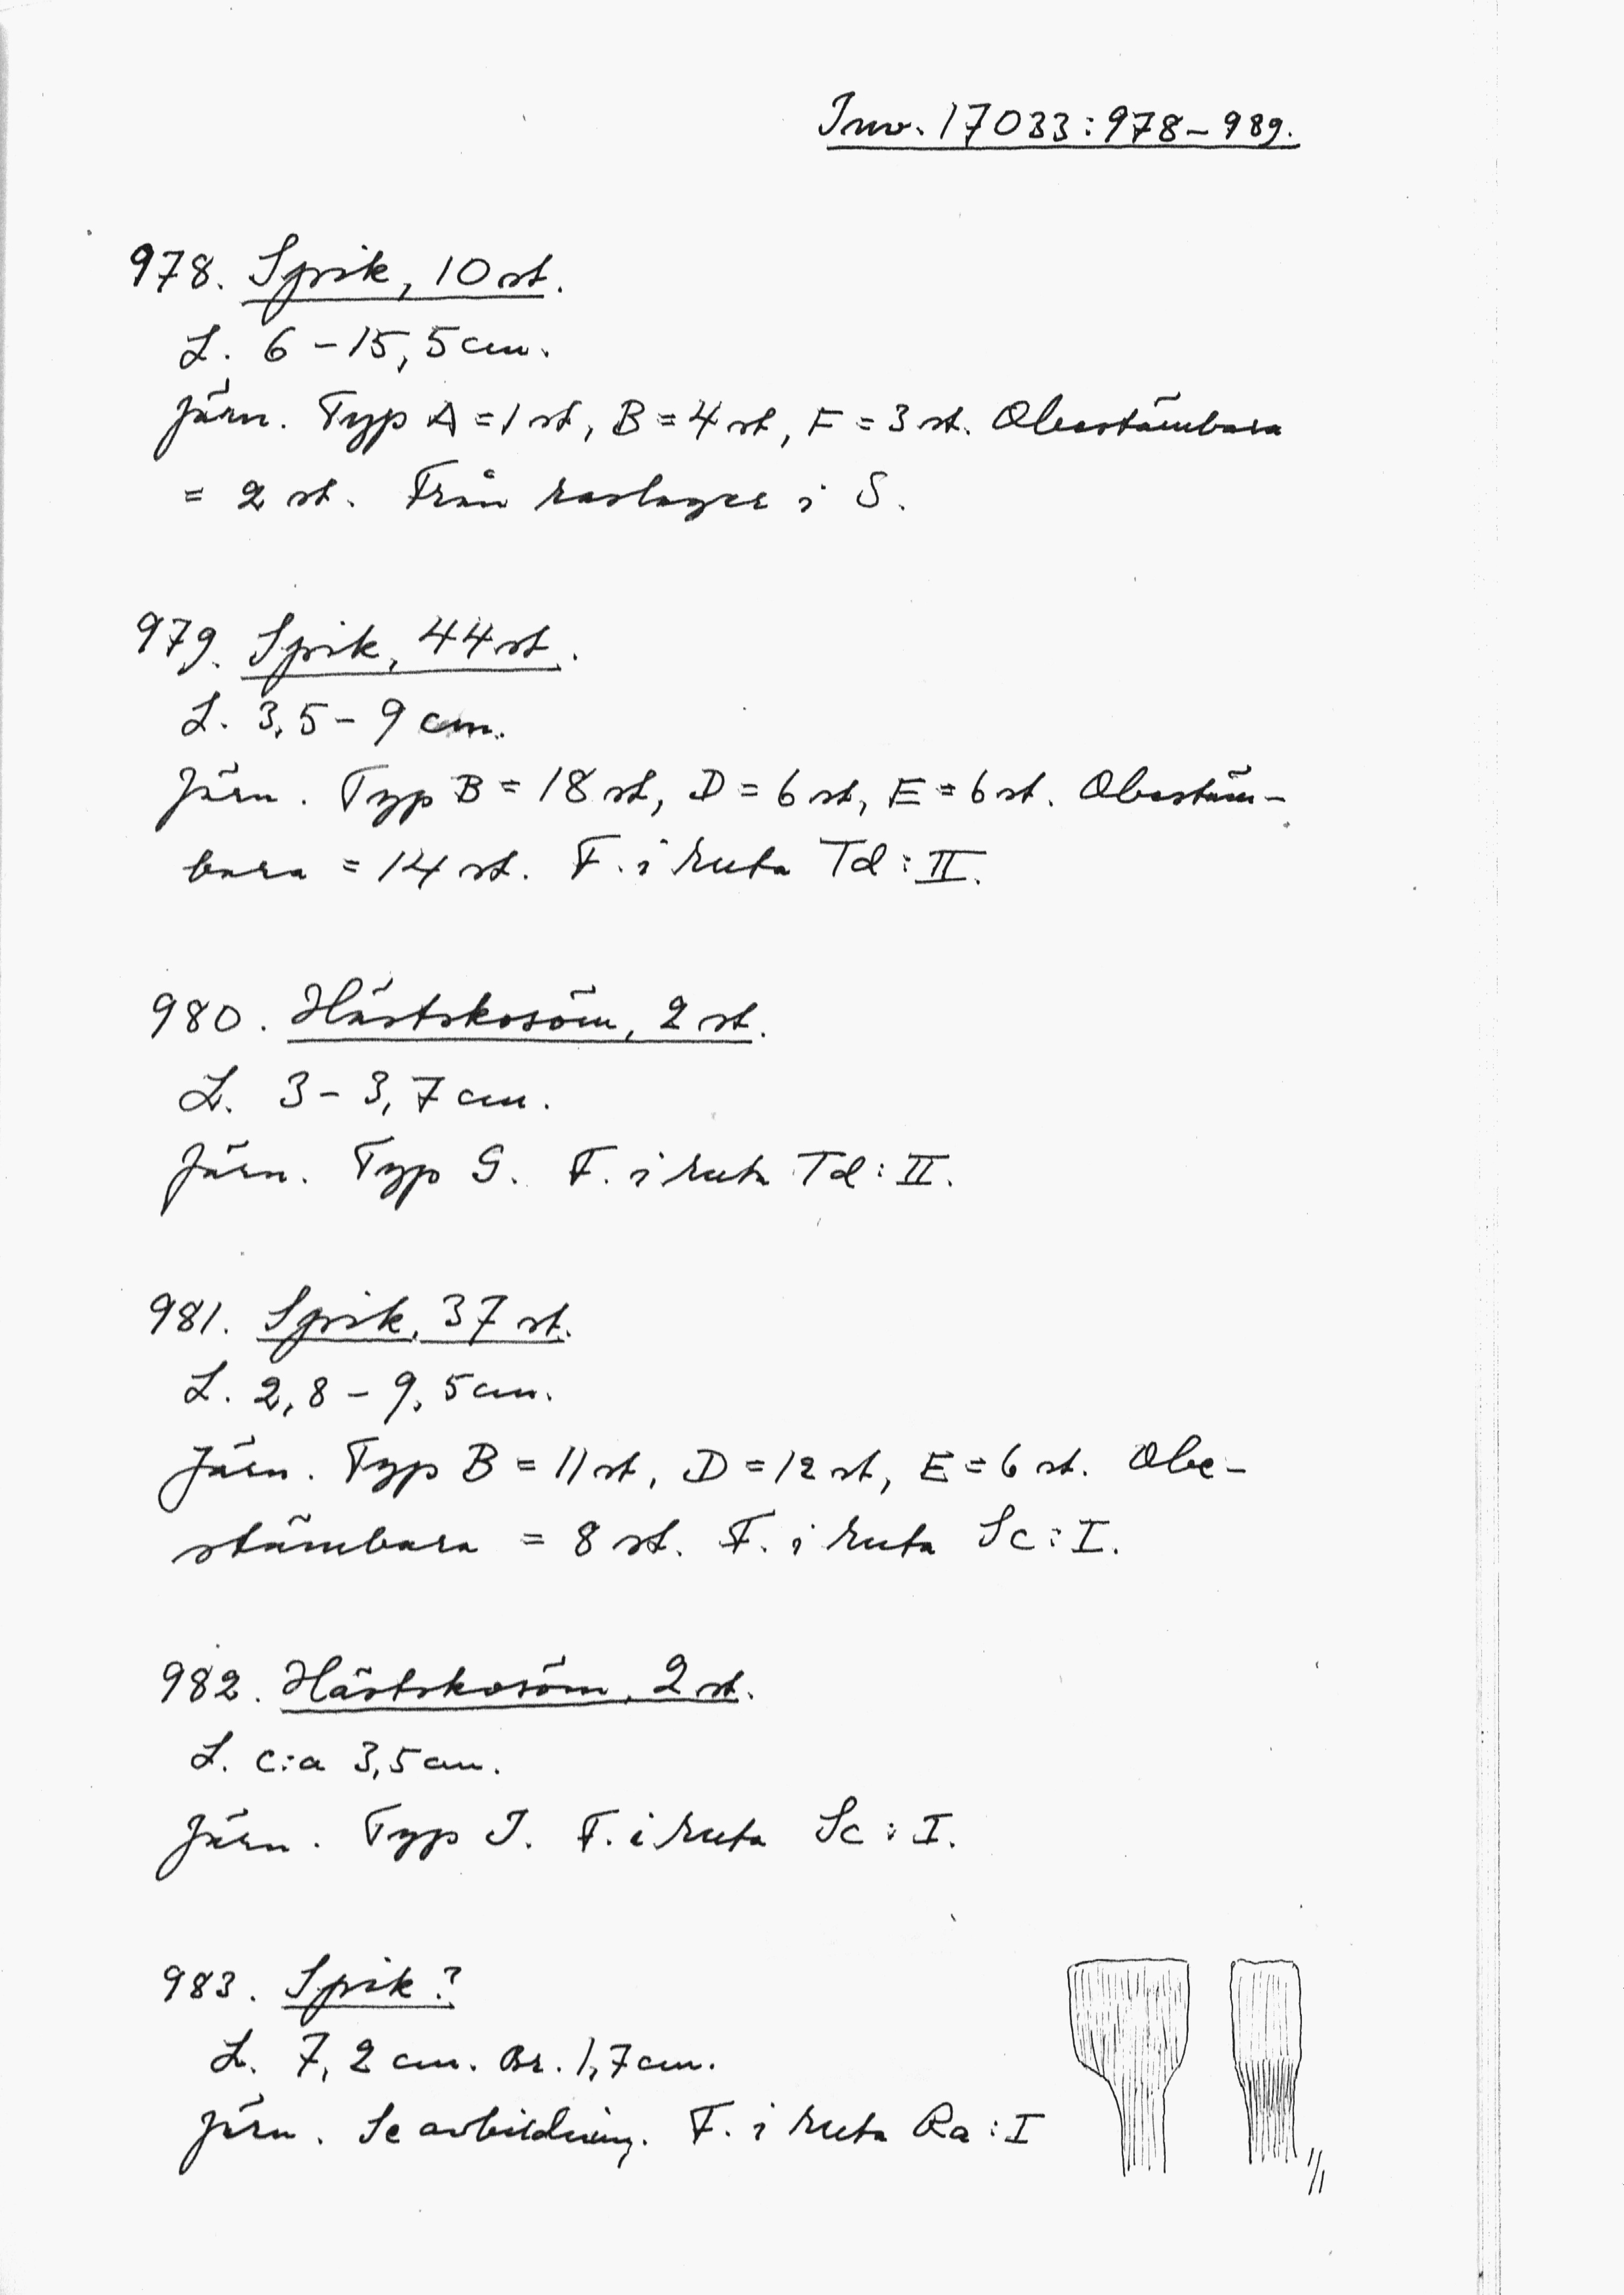 Inv. 17033:978-989.
978. Spik, 10 st.
L. 6-15,5 cm.
Järn. Typ A = 1 st, B = 4 st, F = 3 st. Obestämbara
= 2 st. Från raslager i S.
979. Spik, 44 st.
L. 3,5-9 cm.
Järn. Typ B = 18 st, D = 6 st, E = 6 st. Obestäm-
bara = 14 st. F. i ruta Td:II.
980. Hästskosöm, 2 st.
L. 3-3,7 cm.
Järn. Typ G. F. i ruta Td:II.
981. Spik, 37 st.
L. 2,8-9,5 cm.
Järn. Typ B = 11 st, D = 12 st, E = 6 st. Obe-
stämbara = 8 st. F. i ruta Sc:I.
982. Hästskosöm, 2 st.
L. c:a 3,5 cm.
Järn. Typ J. F. i ruta Sc:I.
983. Spik?
L. 7,2 cm. Br. 1,7 cm.
Järn. Se avbildning. F. i ruta Ra:I
1/1